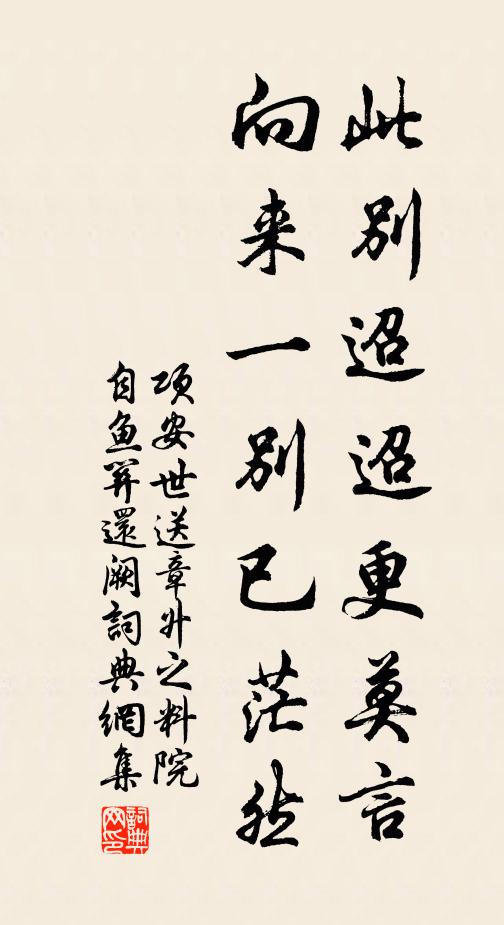 此别迢迢更莫言
向来一别已茫然
项安世送章外之料院
自鱼箅還阙詞典網集
詞典网印